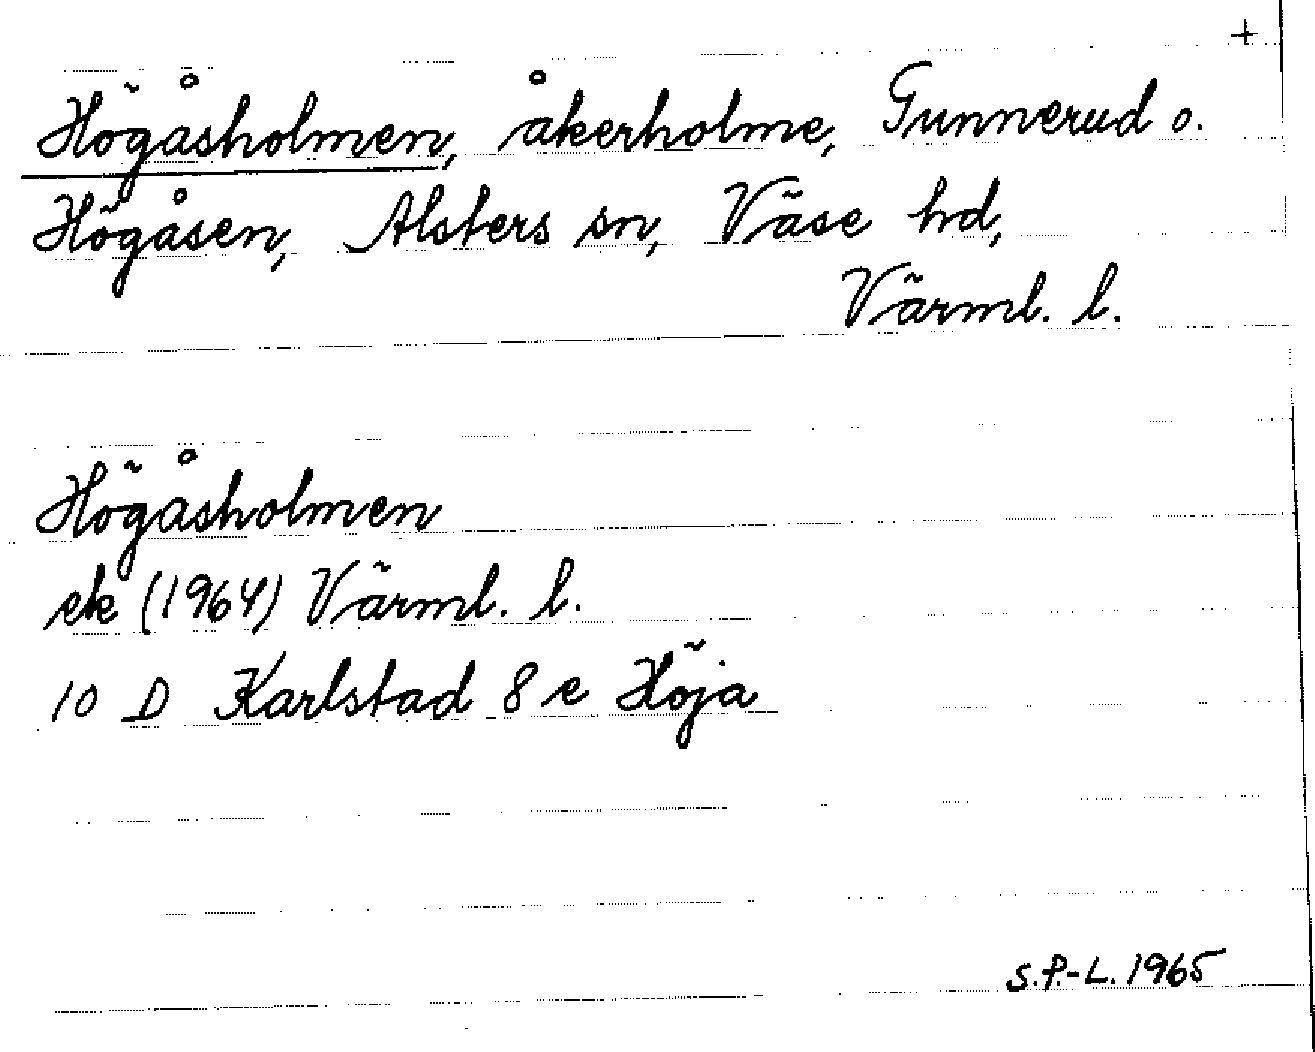 +
Högåsholmen, åkerholme, Gunnerud o.
Högåsen, Alsters sn, Väse hd,
Värml. l.
Högåsholmen
ek (1964) Värml. l.
10 D Karlstad 8 e Höja
S.P.-L. 1965